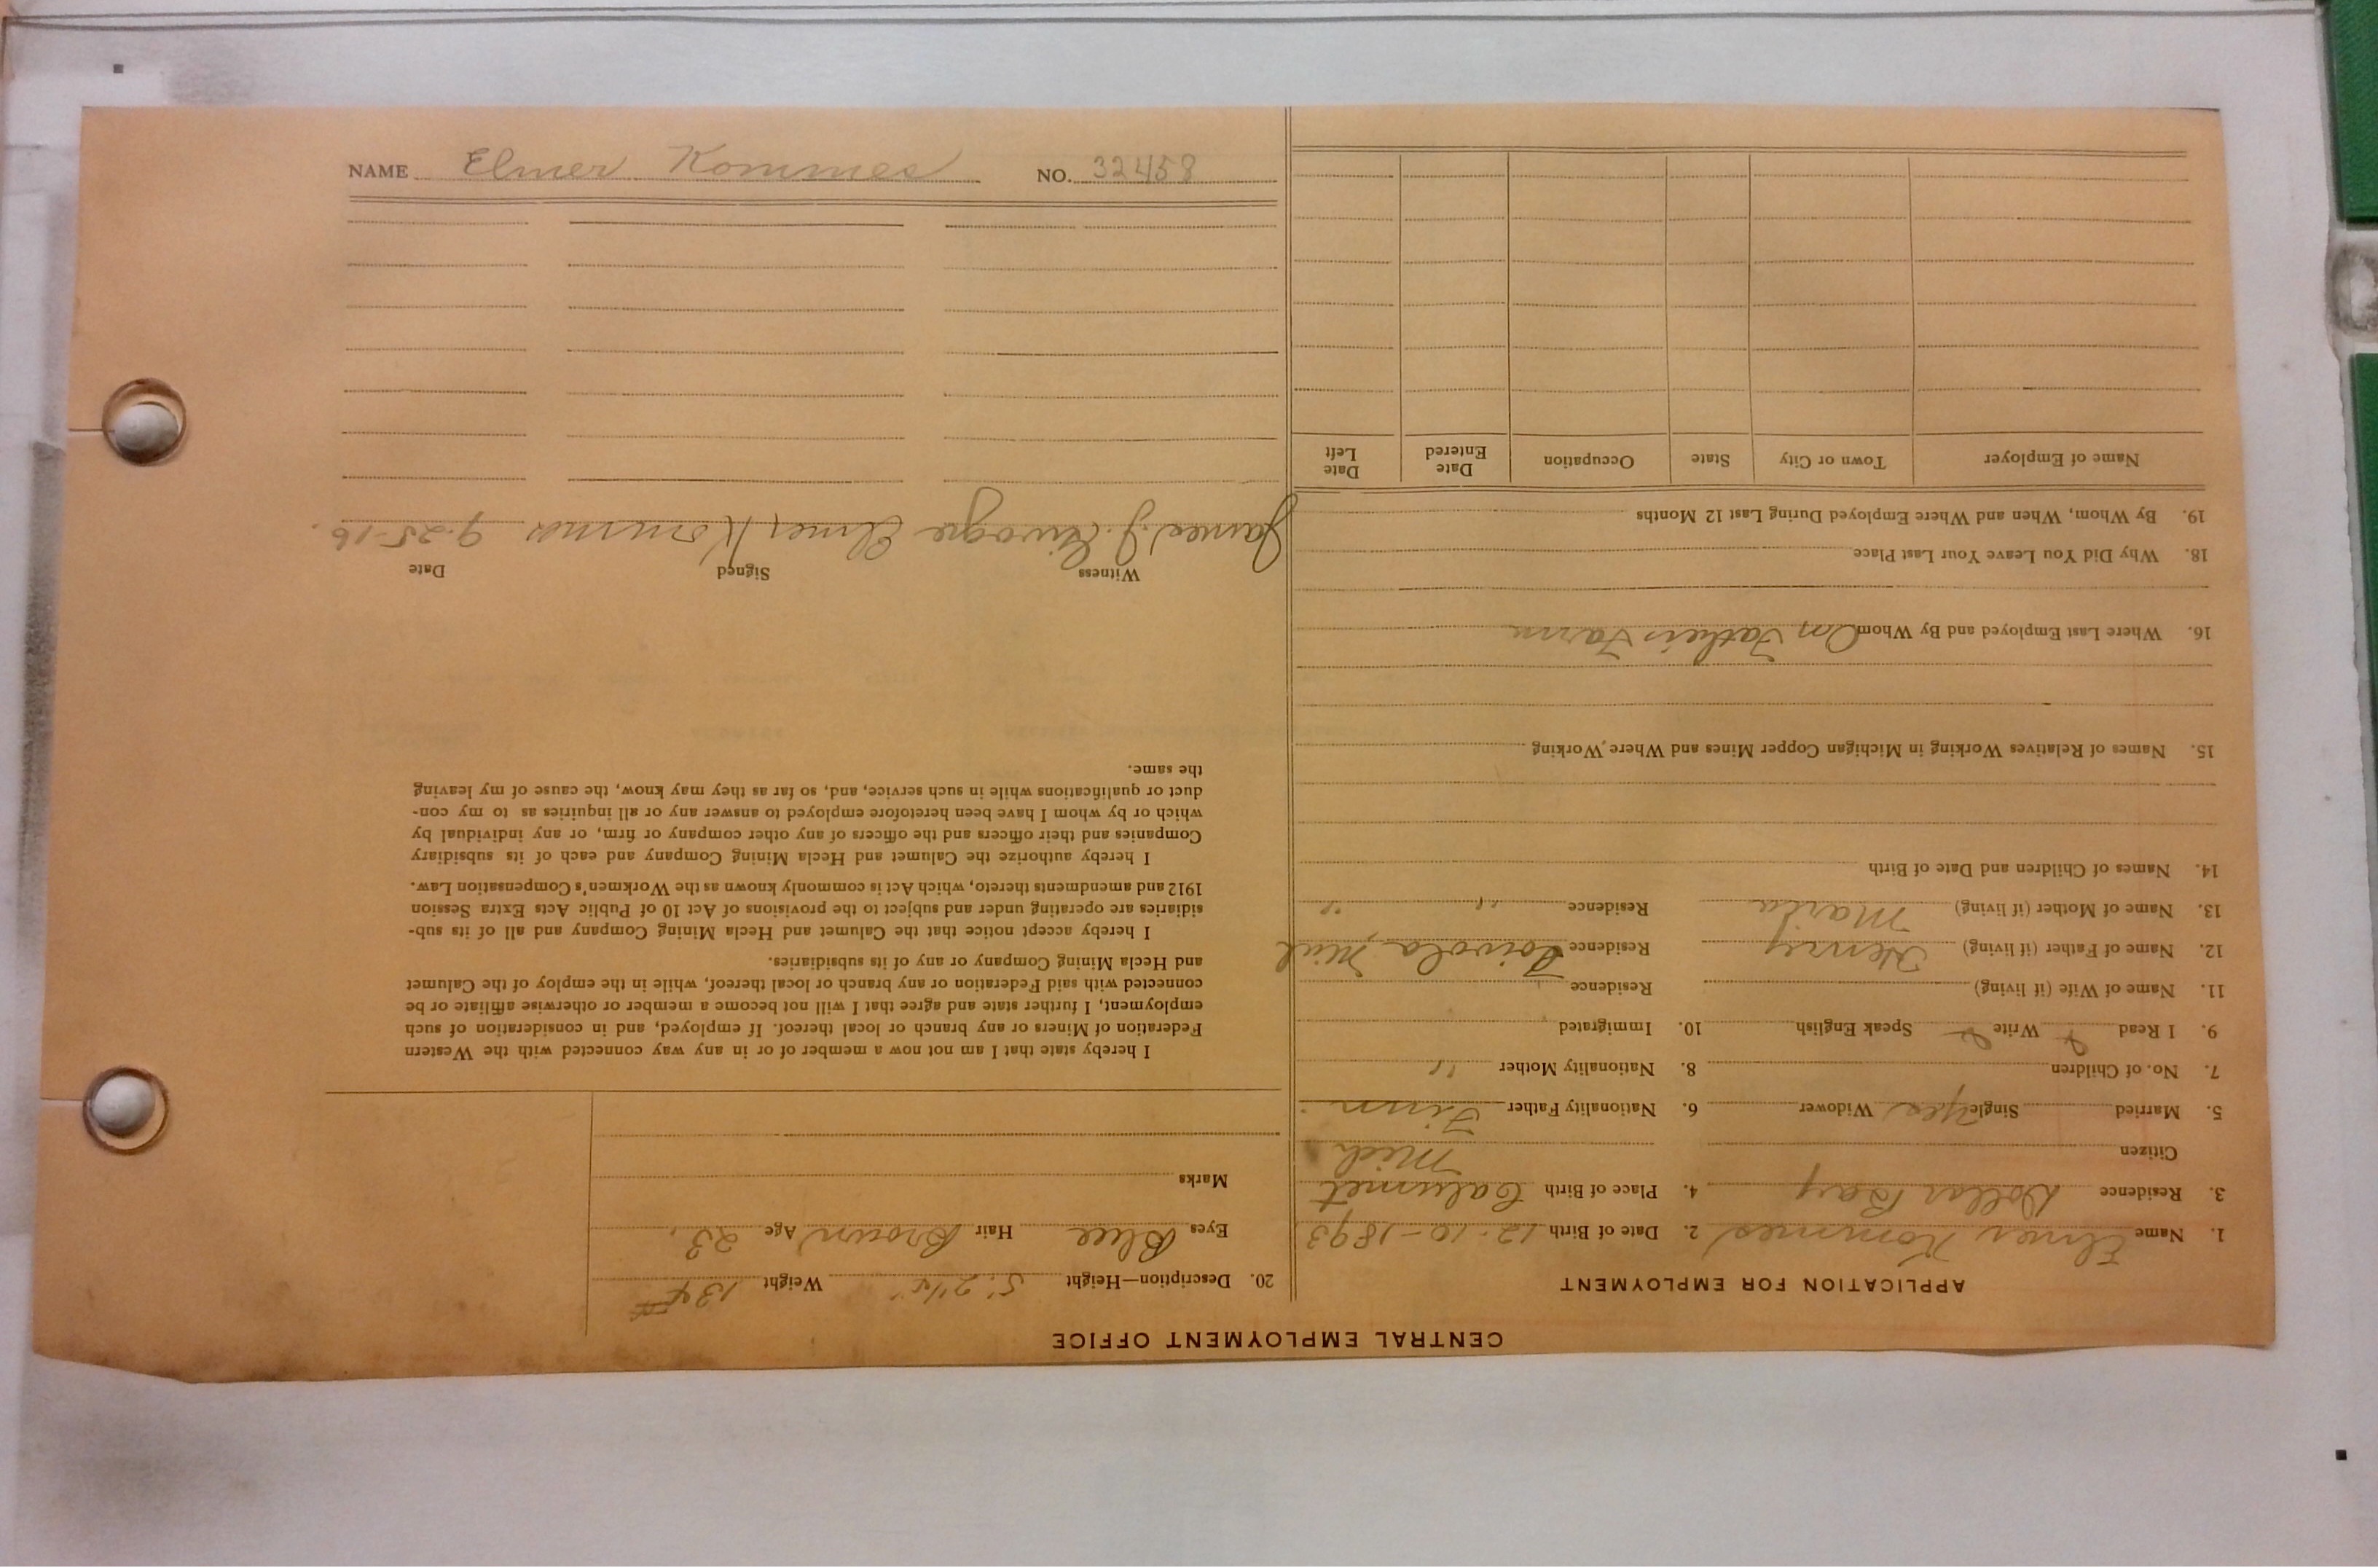 CENTRAL EMPLOYMENT OFFICE
APPLICATION FOR EMPLOYMENT
1. Name Elmer Kommes 2. Date of Birth 12-10-1893
3. Residence Dollar Bay 4. Place of Birth Calumet
Citizen Mich
5. Married Single Yes Widower 6. Nationality Father Finn
7. No. of Children 8. Nationality Mother "
9. I Read Write Speak English 10. Immigrated
11. Name of Wife (if living) Residence
12. Name of Father (if living) Henry Residence Toivola, Mich
13. Name of Mother (if living) Maria Residence " "
14. Names of Children and Date of Birth
15. Names of Relatives Working in Michigan Copper Mines and Where Working
16. Where Last Employed and By Whom On Fathers Farm
18. Why Did You Leave Your Last Place
19. By Whom, When and Where Employed During Last 12 Months
Name of Employer Town or City State Occupation Date Entered Date Left
20. Description—Height 5' 2 1/2" Weight 134#
Eyes Blue Hair Brown Age 23.
Marks
I hereby state that I am not now a member of or in any way connected with the Western
Federation of Miners or any branch or local thereof. If employed, and in consideration of such
employment, I further state and agree that I will not become a member or otherwise affiliate or be
connected with said Federation or any branch or local thereof, while in the employ of the Calumet
and Hecla Mining Company or any of its subsidiaries.
I hereby accept notice that the Calumet and Hecla Mining Company and all of its sub-
sidiaries are operating under and subject to the provisions of Act 10 of Public Acts Extra Session
1912 and amendments thereto, which Act is commonly known as the Workmen's Compensation Law.
I hereby authorize the Calumet and Hecla Mining Company and each of its subsidiary
Companies and their officers and the officers of any other company or firm, or any individual by
which or by whom I have been heretofore employed to answer any or all inquiries as to my con-
duct or qualifications while in such service, and, so far as they may know, the cause of my leaving
the same.
Witness Signed Date
James J. Elmer Kommes 9-25-16
NAME Elmer Kommes NO. 32458